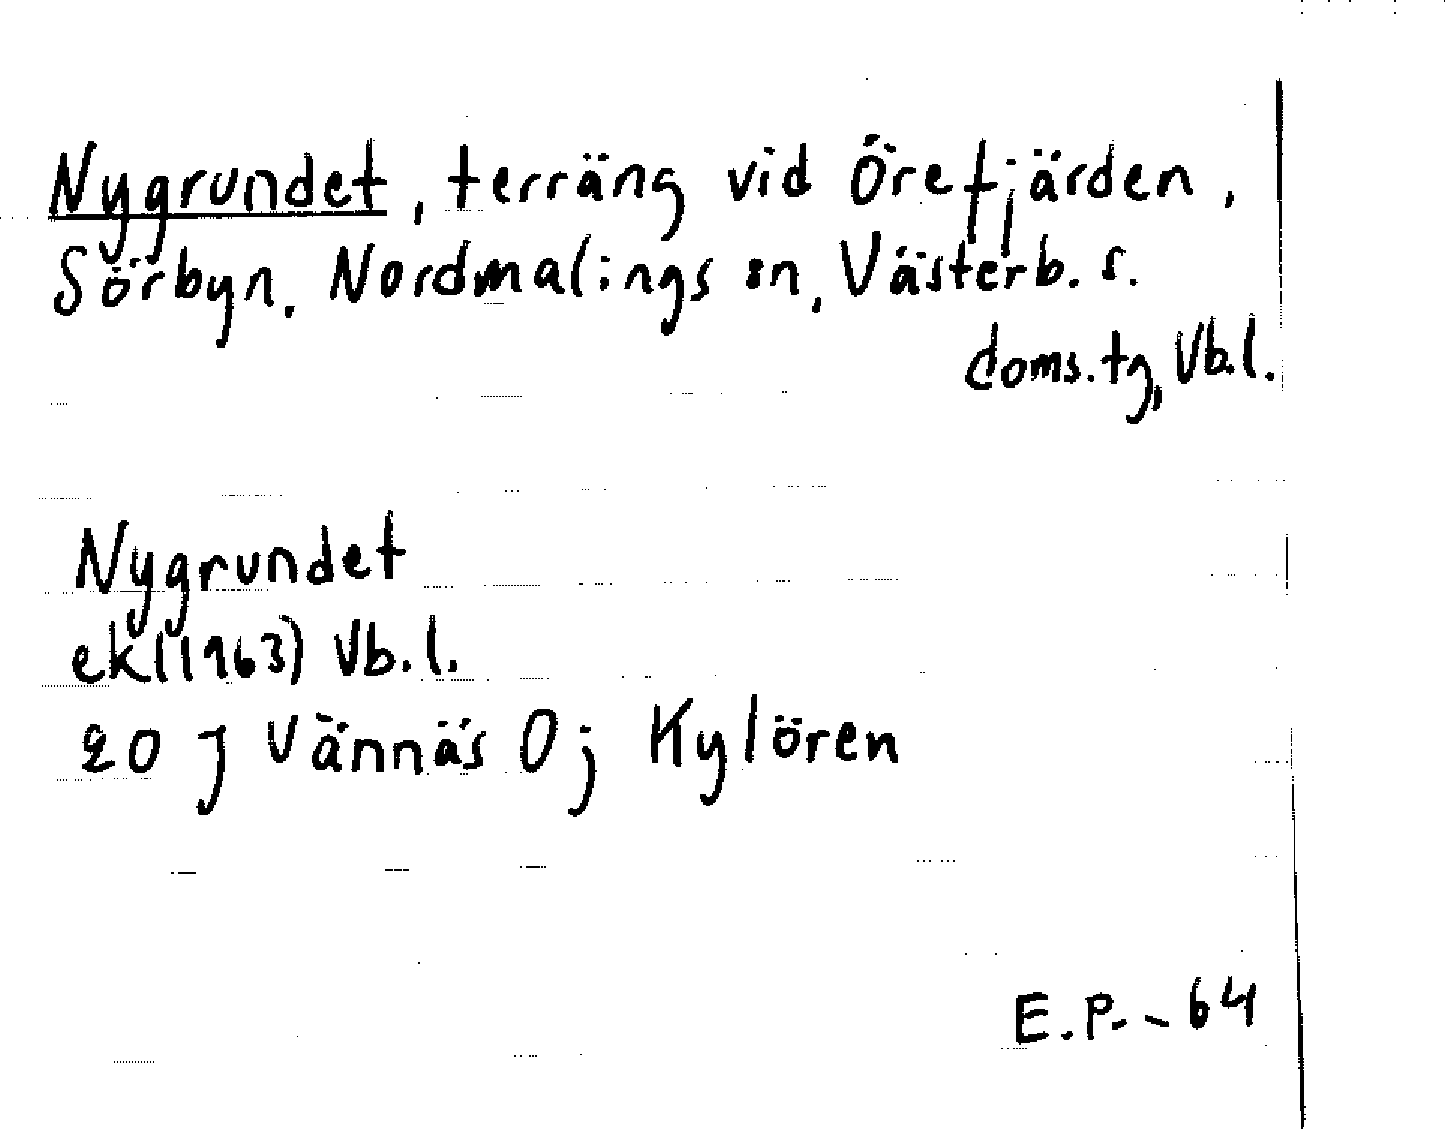 Nygrundet, terräng vid Örefjärden,
Sörbyn. Nordmalings sn, Västerb. s.
doms.tg, Vb.l.
Nygrundet
ek (1963) Vb.l.
20 J Vännäs 0 j Kylören
E.P. - 64